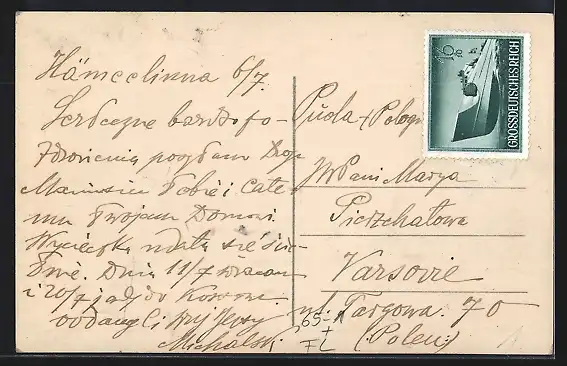 Hämeelinna 6/7.
Serdeczne bardzo po-
zdrowienia posyłam Drogi
Maniusiu Tobie i całe-
mu Twojemu Domowi.
Wycieczka udała się świe-
tnie. Dnia 11/7 wracam
i 20/7 jadę do Korsow.
oddany Ci wuj Jerzy
Michalski
Puola - Pologne
WPani Marya
Pietrzchałowa
Varsovie
ul. Targowa. 70
(Polen)
65-
+
FL
16
GROSSDEUTSCHES REICH